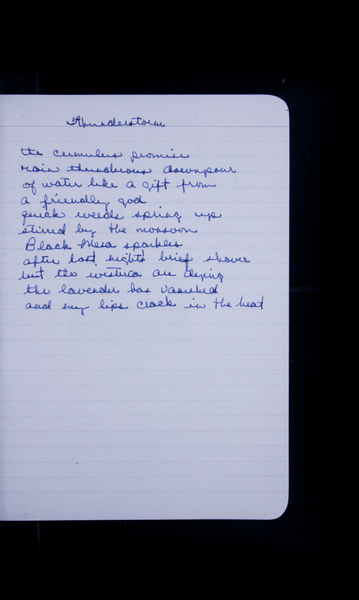 Thunderstorm
the cumulus promise
rain thunderous downpour
of water like a gift from
a friendly god
quick weeds spring up
stirred by the monsoon
Black Mesa sparkles
after last nights brief shower
but the wisteria are dying
the lavender has vanished
and my lips crack in the heat